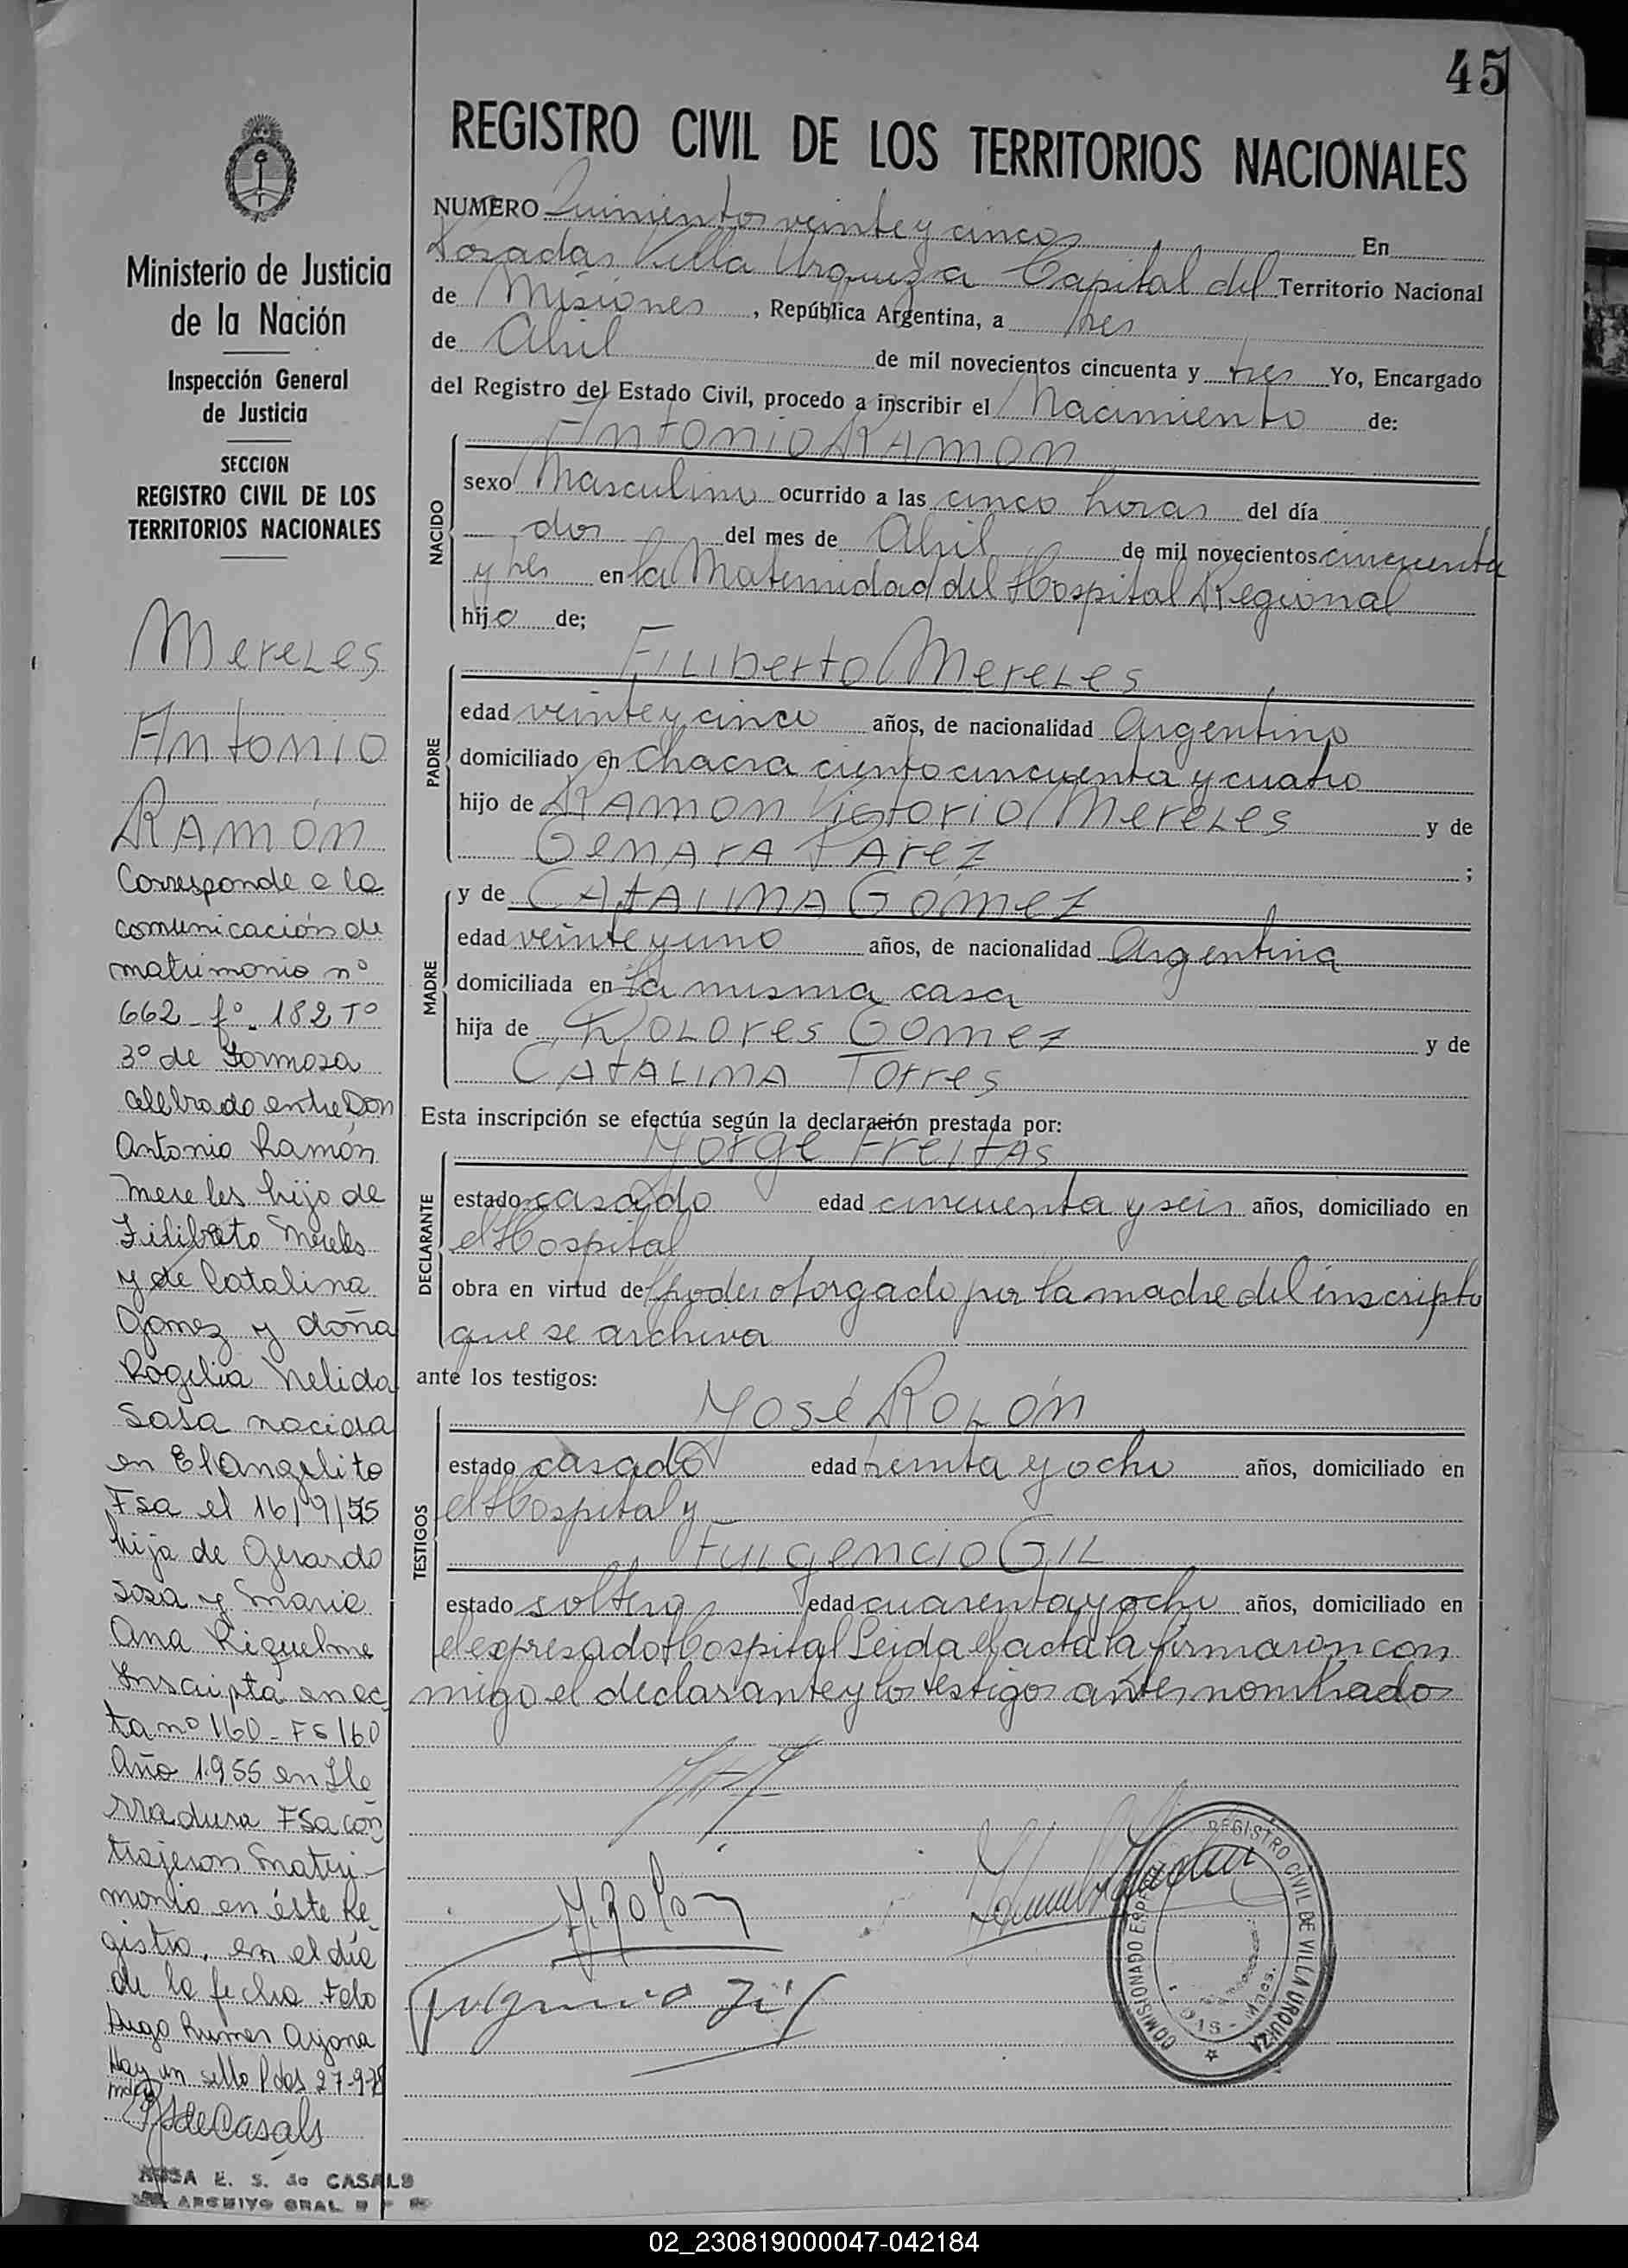 45
REGISTRO CIVIL DE LOS TERRITORIOS NACIONALES
Ministerio de Justicia
de la Nación
Inspección General
de Justicia
SECCION
REGISTRO CIVIL DE LOS
TERRITORIOS NACIONALES
Mereles
Antonio
Ramón
Corresponde a la
comunicación de
matrimonio nº
662 - fº - 182 Tº
3º de Formosa
celebrado entre Don
Antonio Ramón
Mereles hijo de
Filiberto Mereles
y de Catalina
Gomez y doña
Rogelia Nelida
Sosa nacida
en El Angelito
Fsa el 16/9/55
hija de Gerardo
Sosa y Maria
Ana Riquelme
Inscripta en ac
ta nº 160 - Fs 160
Año 1.955 en He
rradura FSa con
trajeron matri-
monio en éste Re
gistro, en el día
de la fecha Fdo
Hugo Arjona
Hay un sello Pdas 27-9-
de Casals
E. S. de CASALS
ARCHIVO GRAL
NUMERO Quinientos veinte y cinco En
Posadas Villa Urquiza Capital del Territorio Nacional
de Misiones, República Argentina, a tres
de Abril de mil novecientos cincuenta y tres Yo, Encargado
del Registro del Estado Civil, procedo a inscribir el Nacimiento de:
NACIDO
Antonio Ramon
sexo Masculino ocurrido a las cinco horas del día
dos del mes de Abril de mil novecientos cincuenta
y tres en la Maternidad del Hospital Regional
hijo de;
PADRE
Filiberto Mereles
edad veinte y cinco años, de nacionalidad Argentino
domiciliado en Chacra ciento cincuenta y cuatro
hijo de Ramon Victorio Mereles y de
Genara Parez ;
MADRE
y de Catalina Gomez
edad veinte y uno años, de nacionalidad Argentina
domiciliada en la misma casa
hija de Dolores Gomez y de
Catalina Torres
Esta inscripción se efectúa según la declaración prestada por:
DECLARANTE
Jorge Freitas
estado casado edad cincuenta y seis años, domiciliado en
el Hospital
obra en virtud de poder otorgado por la madre del inscripto
que se archiva
ante los testigos:
TESTIGOS
José Rolón
estado casado edad treinta y ocho años, domiciliado en
el Hospital y
Fulgencio Gil
estado soltero edad cuarenta y ocho años, domiciliado en
el expresado Hospital Leida el acta la firmaron con
migo el declarante y los testigos antes nombrados
J. Rolon
Fulgencio Gil
REGISTRO CIVIL DE VILLA URQUIZA
COMISIONADO
02_230819000047-042184